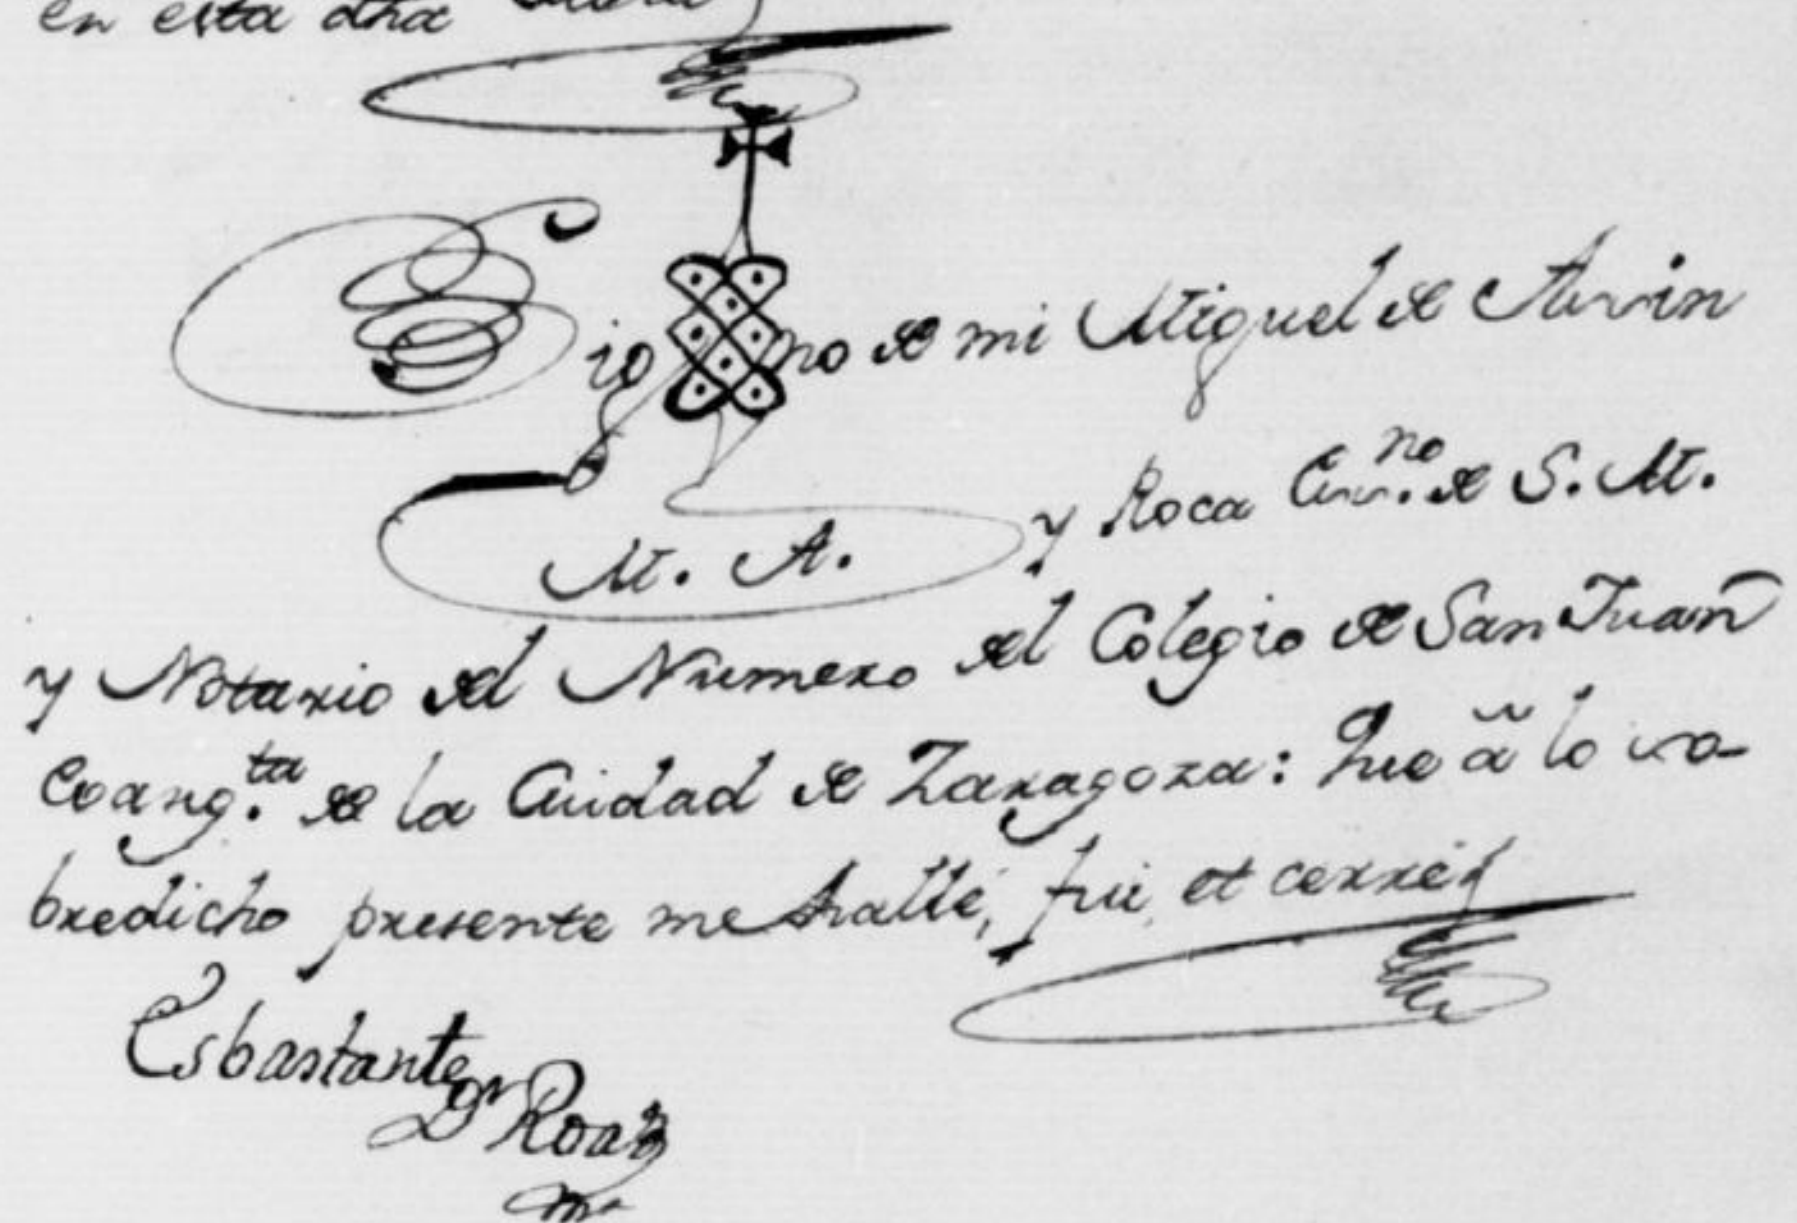 en esta dha
Signo de mi Miguel de
y Roca de S. M.
M. A.
y Notario del Numero del Colegio de San Juan
Evang.ta de la Ciudad de Zaragoza: Que ã lo so-
bredicho presente me hallé, fui, et cerré
Esbastante
Dr